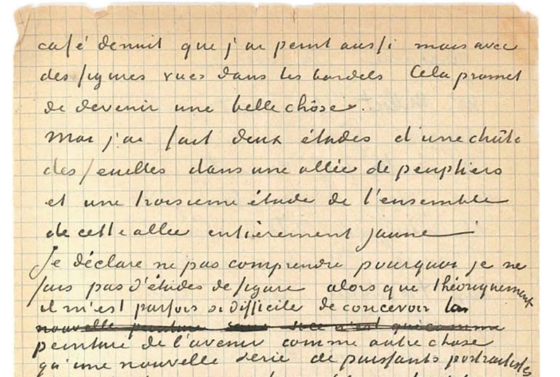 café de nuit que j'ai peint aussi mais avec
des figures vues dans les bordels Cela promet
de devenir une belle chose.
Moi j'ai fait deux études d'une chûte
des feuilles dans une allée de peupliers
et une troisieme étude de l'ensemble
de cette allée entièrement jaune
Je déclare ne pas comprendre pourquoi je ne
fais pas d'études de figure alors que théoriquement
il m'est parfois si difficile de concevoir la
nouvelle peinture c'est que comme
peinture de l'avenir comme autre chose
qu'une nouvelle série de puissants portraitistes